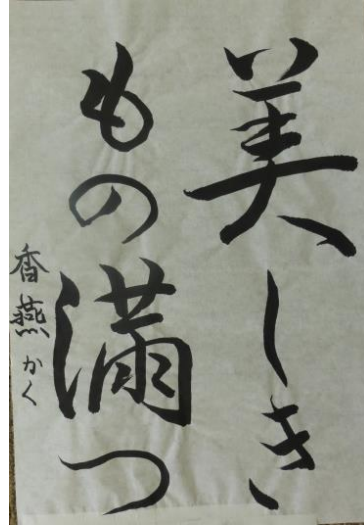 美しき
もの満つ
香燕かく